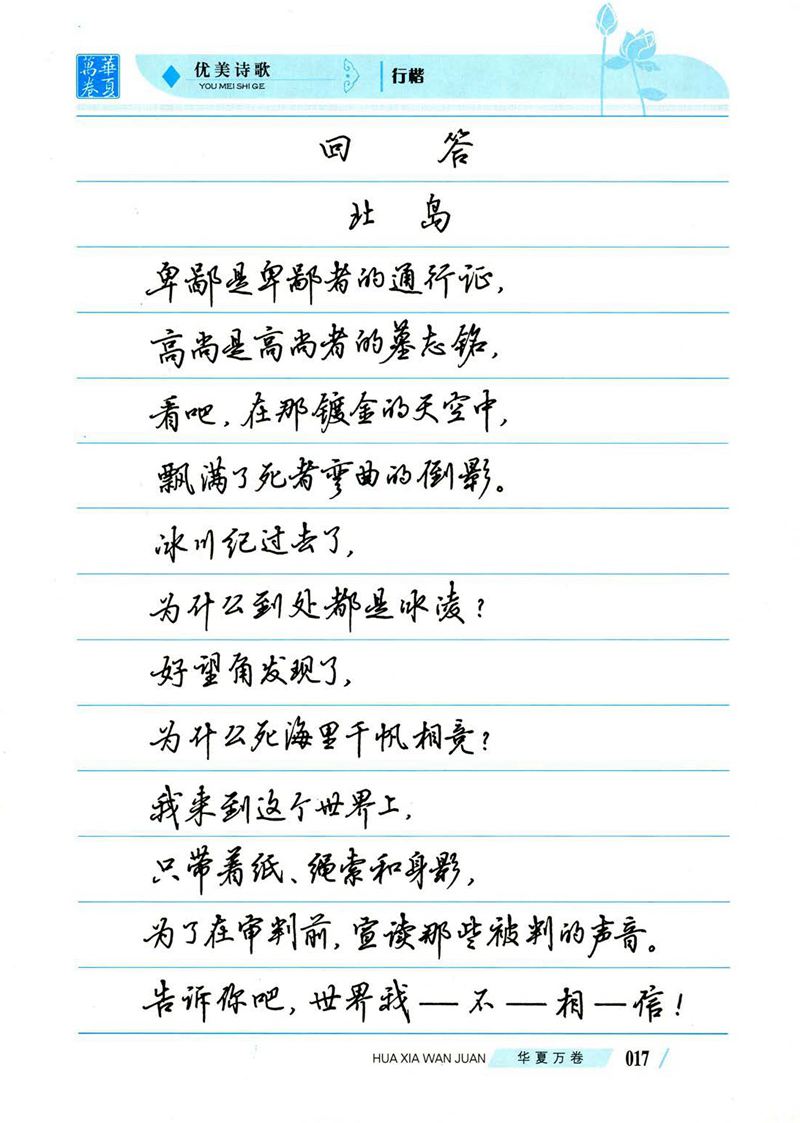 華夏萬卷
优美诗歌 行楷
YOU MEI SHI GE
回 答
北 岛
卑鄙是卑鄙者的通行证,
高尚是高尚者的墓志铭,
看吧,在那镀金的天空中,
飘满了死者弯曲的倒影。
冰川纪过去了,
为什么到处都是冰凌?
好望角发现了,
为什么死海里千帆相竞?
我来到这个世界上,
只带着纸、绳索和身影,
为了在审判前,宣读那些被判的声音。
告诉你吧,世界我—不—相—信!
HUA XIA WAN JUAN 华夏万卷 017